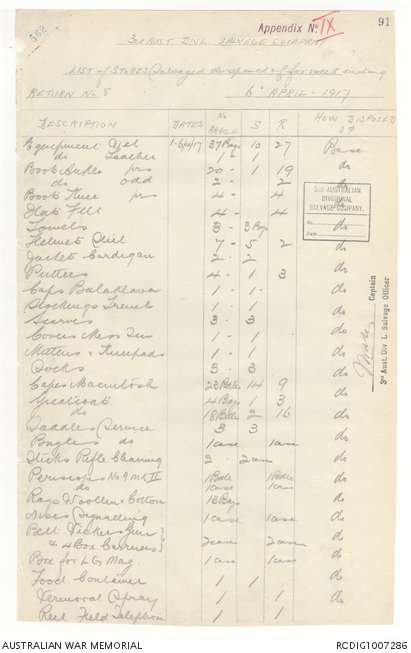 568
Appendix No. IX
91
3rd AUST. DIVL SALVAGE COMPANY
LIST of STORES Salvaged disposed of for week ending
RETURN No. 5
6th APRIL - 1917
DESCRIPTION DATES No S R HOW DISPOSED OF
Equipment 1-6/4/17 37 Bags 10 27 Base
do Leather 1 - 1 do
Boots Ankle prs 20 - 1 19 do
do odd 2 - 2 do
Boots Knee prs 4 - 4 do
Hats Felt 4 - 4
Towels 3 - 3 do
Helmets Steel 7 - 5 2 do
Jackets Cardigan 2 - 2 do
Puttees 4 - 1 3 do
Caps Balaklava 1 - 1 do
Stockings Trench 1 - 1 do
Scarves 3 - 3 do
Covers Mess Tin 1 - 1 do
Mittens & Kneepads 1 - 1 do
Socks 3 - 3 do
Capes Macintosh 23 14 9 do
Greatcoats 4 Bags 1 3 do
do 18 2 16 do
Saddles Service 3 3 do
Bugles do 1 case 1 case do
Sticks Rifle Cleaning 2 - 2 do
Periscopes No 9 Mk II do
do 1 case 1 case do
Rags Woollen & Cotton 13 Bags do
Discs Signalling 1 case 1 case do
Belt Vickers Gun
& 4 Box Carriers 2 cases 2 cases do
Box for LG Mag. 1 case 1 case do
Food Container 1 1 do
Vermoral Spray 1 1 do
Reel Field Telephone 1 1 do
3rd AUSTRALIAN
DIVISIONAL
SALVAGE COMPANY.
No.
Date
Captain
3rd Aust. Div L Salvage Officer
AUSTRALIAN WAR MEMORIAL
RCDIG1007286